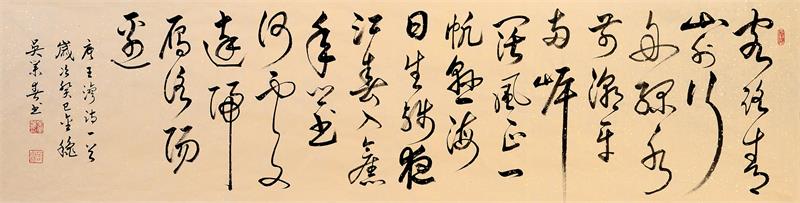 客路青
山外行
舟綠水
前潮平
兩岸
闊風正一
帆懸海
日生殘夜
江春入舊
年鄉書
何處
達歸
雁洛陽
邊
唐王灣詩一首
歲次癸巳金秋
吳春書